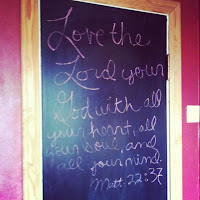 Love the
Lord your
God with all
your heart, all
your soul, and
all your mind.
Matt. 22:37